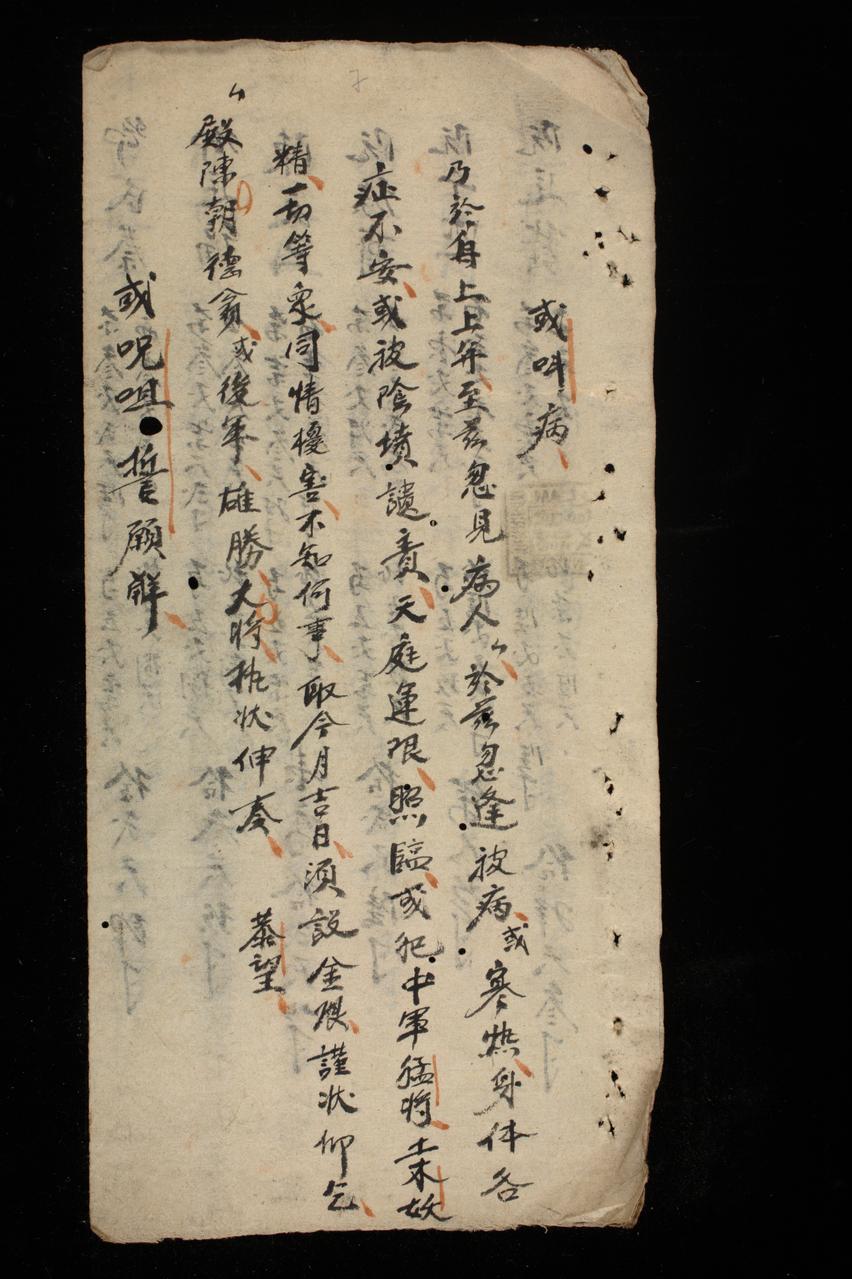 或叫病
乃於身上上年至茲忽見病人厶於茲忽逢被病或寒热身体各
症不安或被陰墳譴責天庭運限照臨或犯中軍猛将土木妖
精一切等衆同情擾害不知何事取今月吉日須設金限謹状仰乞
厶殿陳朝德翁或後軍雄勝大将执状伸奏 恭望
或呪咀誓願解